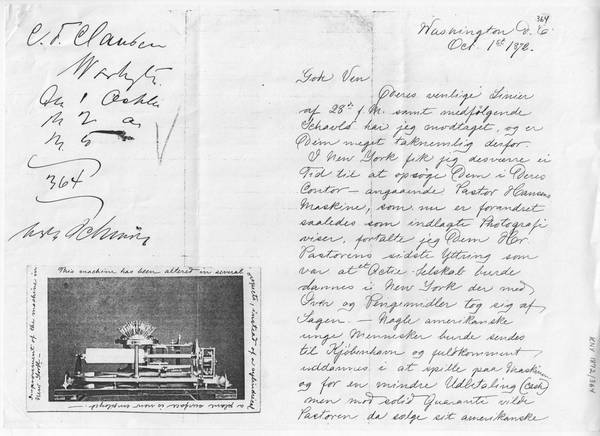 C. F. Clausen
364
This machine has been altered in several
a plane surface is now employed —
improvement of the machine in
New York. —
364
Washington D. C.
Oct. 1st 1872.
Gode Ven
Deres venlige Linier
af 28th f. M. samt medfølgende
har jeg modtaget, og er
Dem meget taknemlig derfor.
I New York fik jeg desværre ei
Tid til at opsøge Dem i Deres
Contor — angaaende Pastor Hansens
Maskine, som nu er forandret
saaledes som indlagte Photografi
viser, fortalte jeg Dem Hr.
Pastorens sidste Yttring som
var at et Actie-Selskab burde
dannes i New York der med
Iver og Pengemidler tog sig af
Sagen. — Nogle amerikanske
unge Mennesker burde sendes
til Kjøbenhavn og fuldkomment
uddannes i at spille paa Maskinen
og for en mindre Udbetaling (cash)
men mod solid Garantie vilde
Pastoren da sælge sit amerikanske
KNV 1872/364